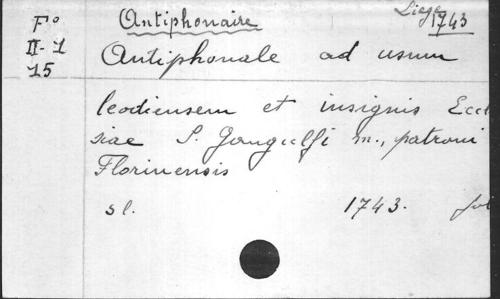 F° Antiphonaire Liege 1743
II-1 Antiphonale ad usum
15
leodiensem et insignis Eccl
siae S. Gangulfi m., patroni
Florinensis
sl. 1743. fol